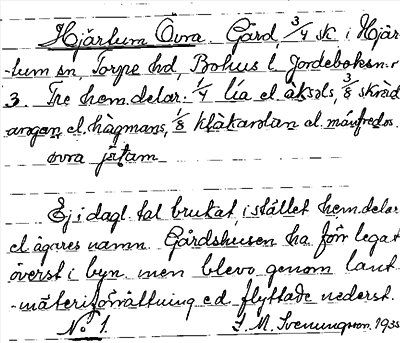 Hjärtum Övra. Gård, 3/4 sk. i Hjär-
tum sn, Torpe hd, Bohus l. Jordeboksn:r
3. Tre hem.delar: 1/4 lia el. åksäls, 3/8 skräd
aregen el. hägmans, 1/8 klåkarolan el. månfredos
övra järtam
Ej i dagl. tal brukat, i stället hem.delar
el. ägares namn. Gårdshusen ha förr legat
överst i byn men blevo genom lant-
-mäteriförrättning e.d. flyttade nederst.
No 1. J. M. Svenungson. 1935